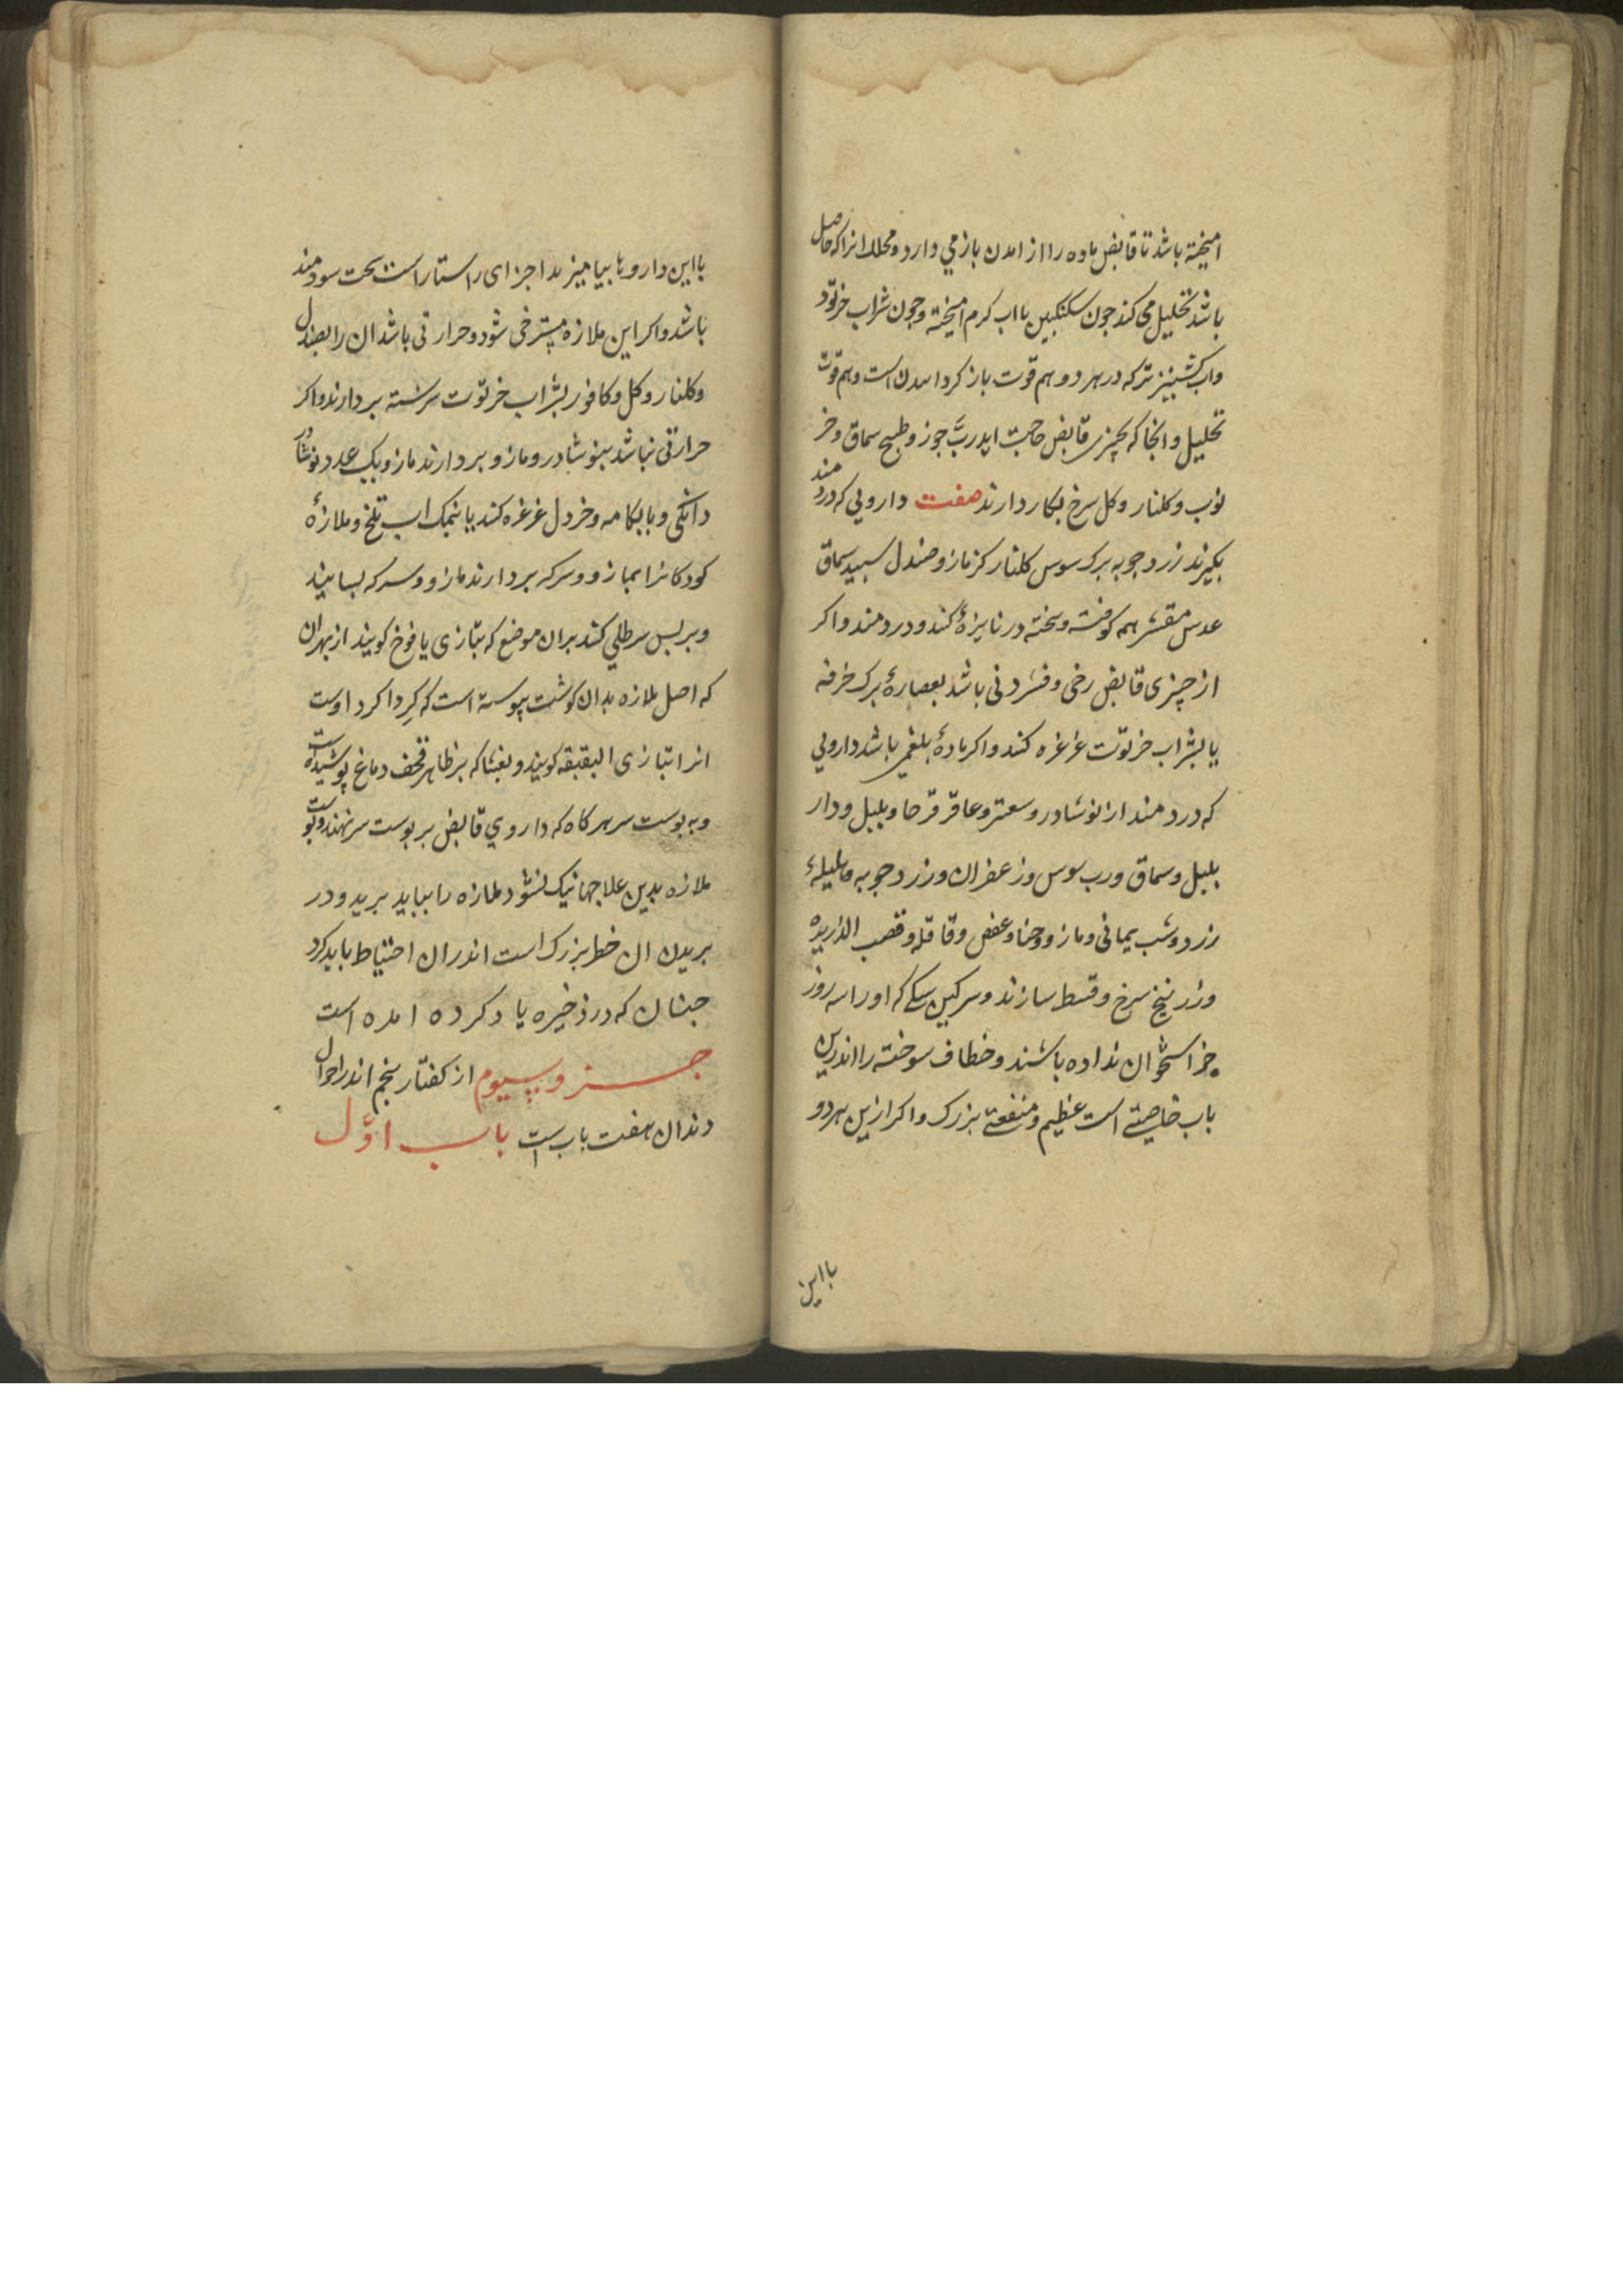 امیخته باشد تا قابض ماده را از امدن باز می دارد و محلل انرا که حاصل
باشد تحلیل می کند جون سکنکبین با اب کرم امیخته و جون شراب خرتود
واب کشنیز تر که در هر دو هم قوت باز کردا مدن است و هم قوت
تحلیل و انجا که بجیزی قابض حاجت اید ربّ جوز و طبیح سماق و خر
نوب و کلنار و کل سرخ بکار دارند صفت دارویی که دردمند
بکیرند زرد جوبه برک سوس کلنار کزمازو صندل سبید سماق
عدس مقشر همه کوفته و بیخته در نایزهٔ کنند و دردمند واکر
از جیزی قابض رخی و فسردنی باشد بعصارهٔ برک خرفه
یا بشراب خرتوّت غرغره کنند واکر مادهٔ بلغمی باشد دارویی
که دردمند از نوشادر و سعتر و عاقر قرحا و بلبل و دار
بلبل و سماق ورب سوس و زعفران و زرد جوبه و هلیلهٔ
زرد و شب یمانی و مازو و حنا و عفص و قاقله و قصب الذریره
و زرنیخ سرخ و قسط سازند و سرکین سکی که اورا سه روز
جز استخوان نداده باشند و خطاف سوخته را اندرین
باب خاصیتی است عظیم و منفعتی بزرک و اکر ازین هر دو
با این
با این داروها بیامیزند اجزای راستا راست سخت سودمند
باشد و اکر این ملازه مسترخی شود و حرارتی باشد ان را بصندل
و کلنار و کل و کافور بشراب خرتوّت سرشته بردارند و اکر
حرارتی نباشد بنوشادر و مازو بردارند مازو یک عدد نوشادر
دانکی و با بکامه و خردل غرغره کنند یا بنمک اب تلخ و ملازهٔ
کودکانرا بمازو و سرکه بردارند مازو و سرکه بسایند
و بر بس سر طلی کنند بران موضع که بتازی یافوخ کویند از بهر ان
که اصل ملازه بدان کوشت بیوسته است که کرداکرد اوست
انرا بتازی البقبقه کویند و بغشا که بر ظاهر قحف دماغ بوشیده است
و به بوست سر هرکاه که داروی قابض بر بوست سر نهند و
ملازه بدین علاجها نیک نشود ملازه را بباید برید و در
بریدن ان خطر بزرک است اندران احتیاط باید کرد
جنان که در ذخیره یاد کرده امده است
جـــزو سیوم از کفتار بنجم اندر احوال
دندان هفت باب است بـــاب اوّل